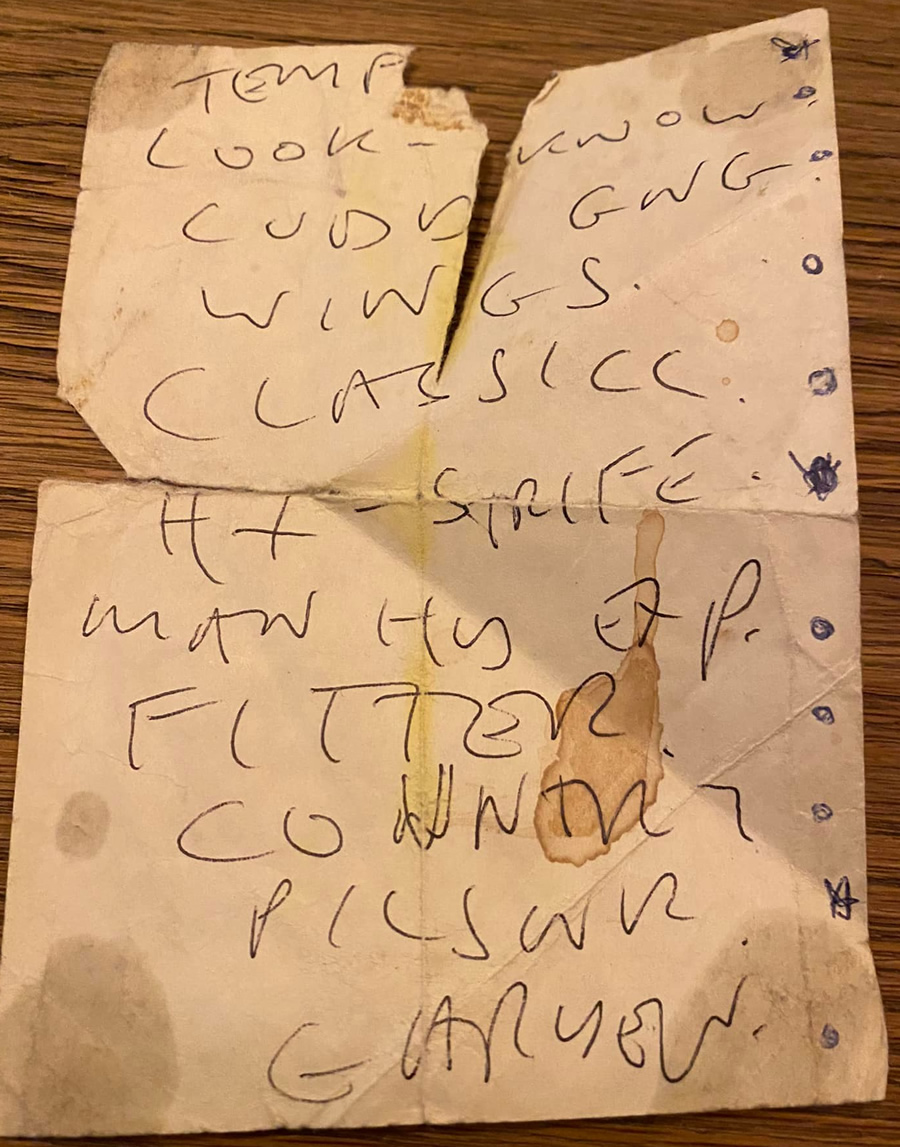 TEMP
LOOK - KNOW.
CUDD GNG.
WINGS.
CLASSICC.
HX - STRIFE.
MAN HY EXP.
FITTER.
PILSWR
GARYEN.